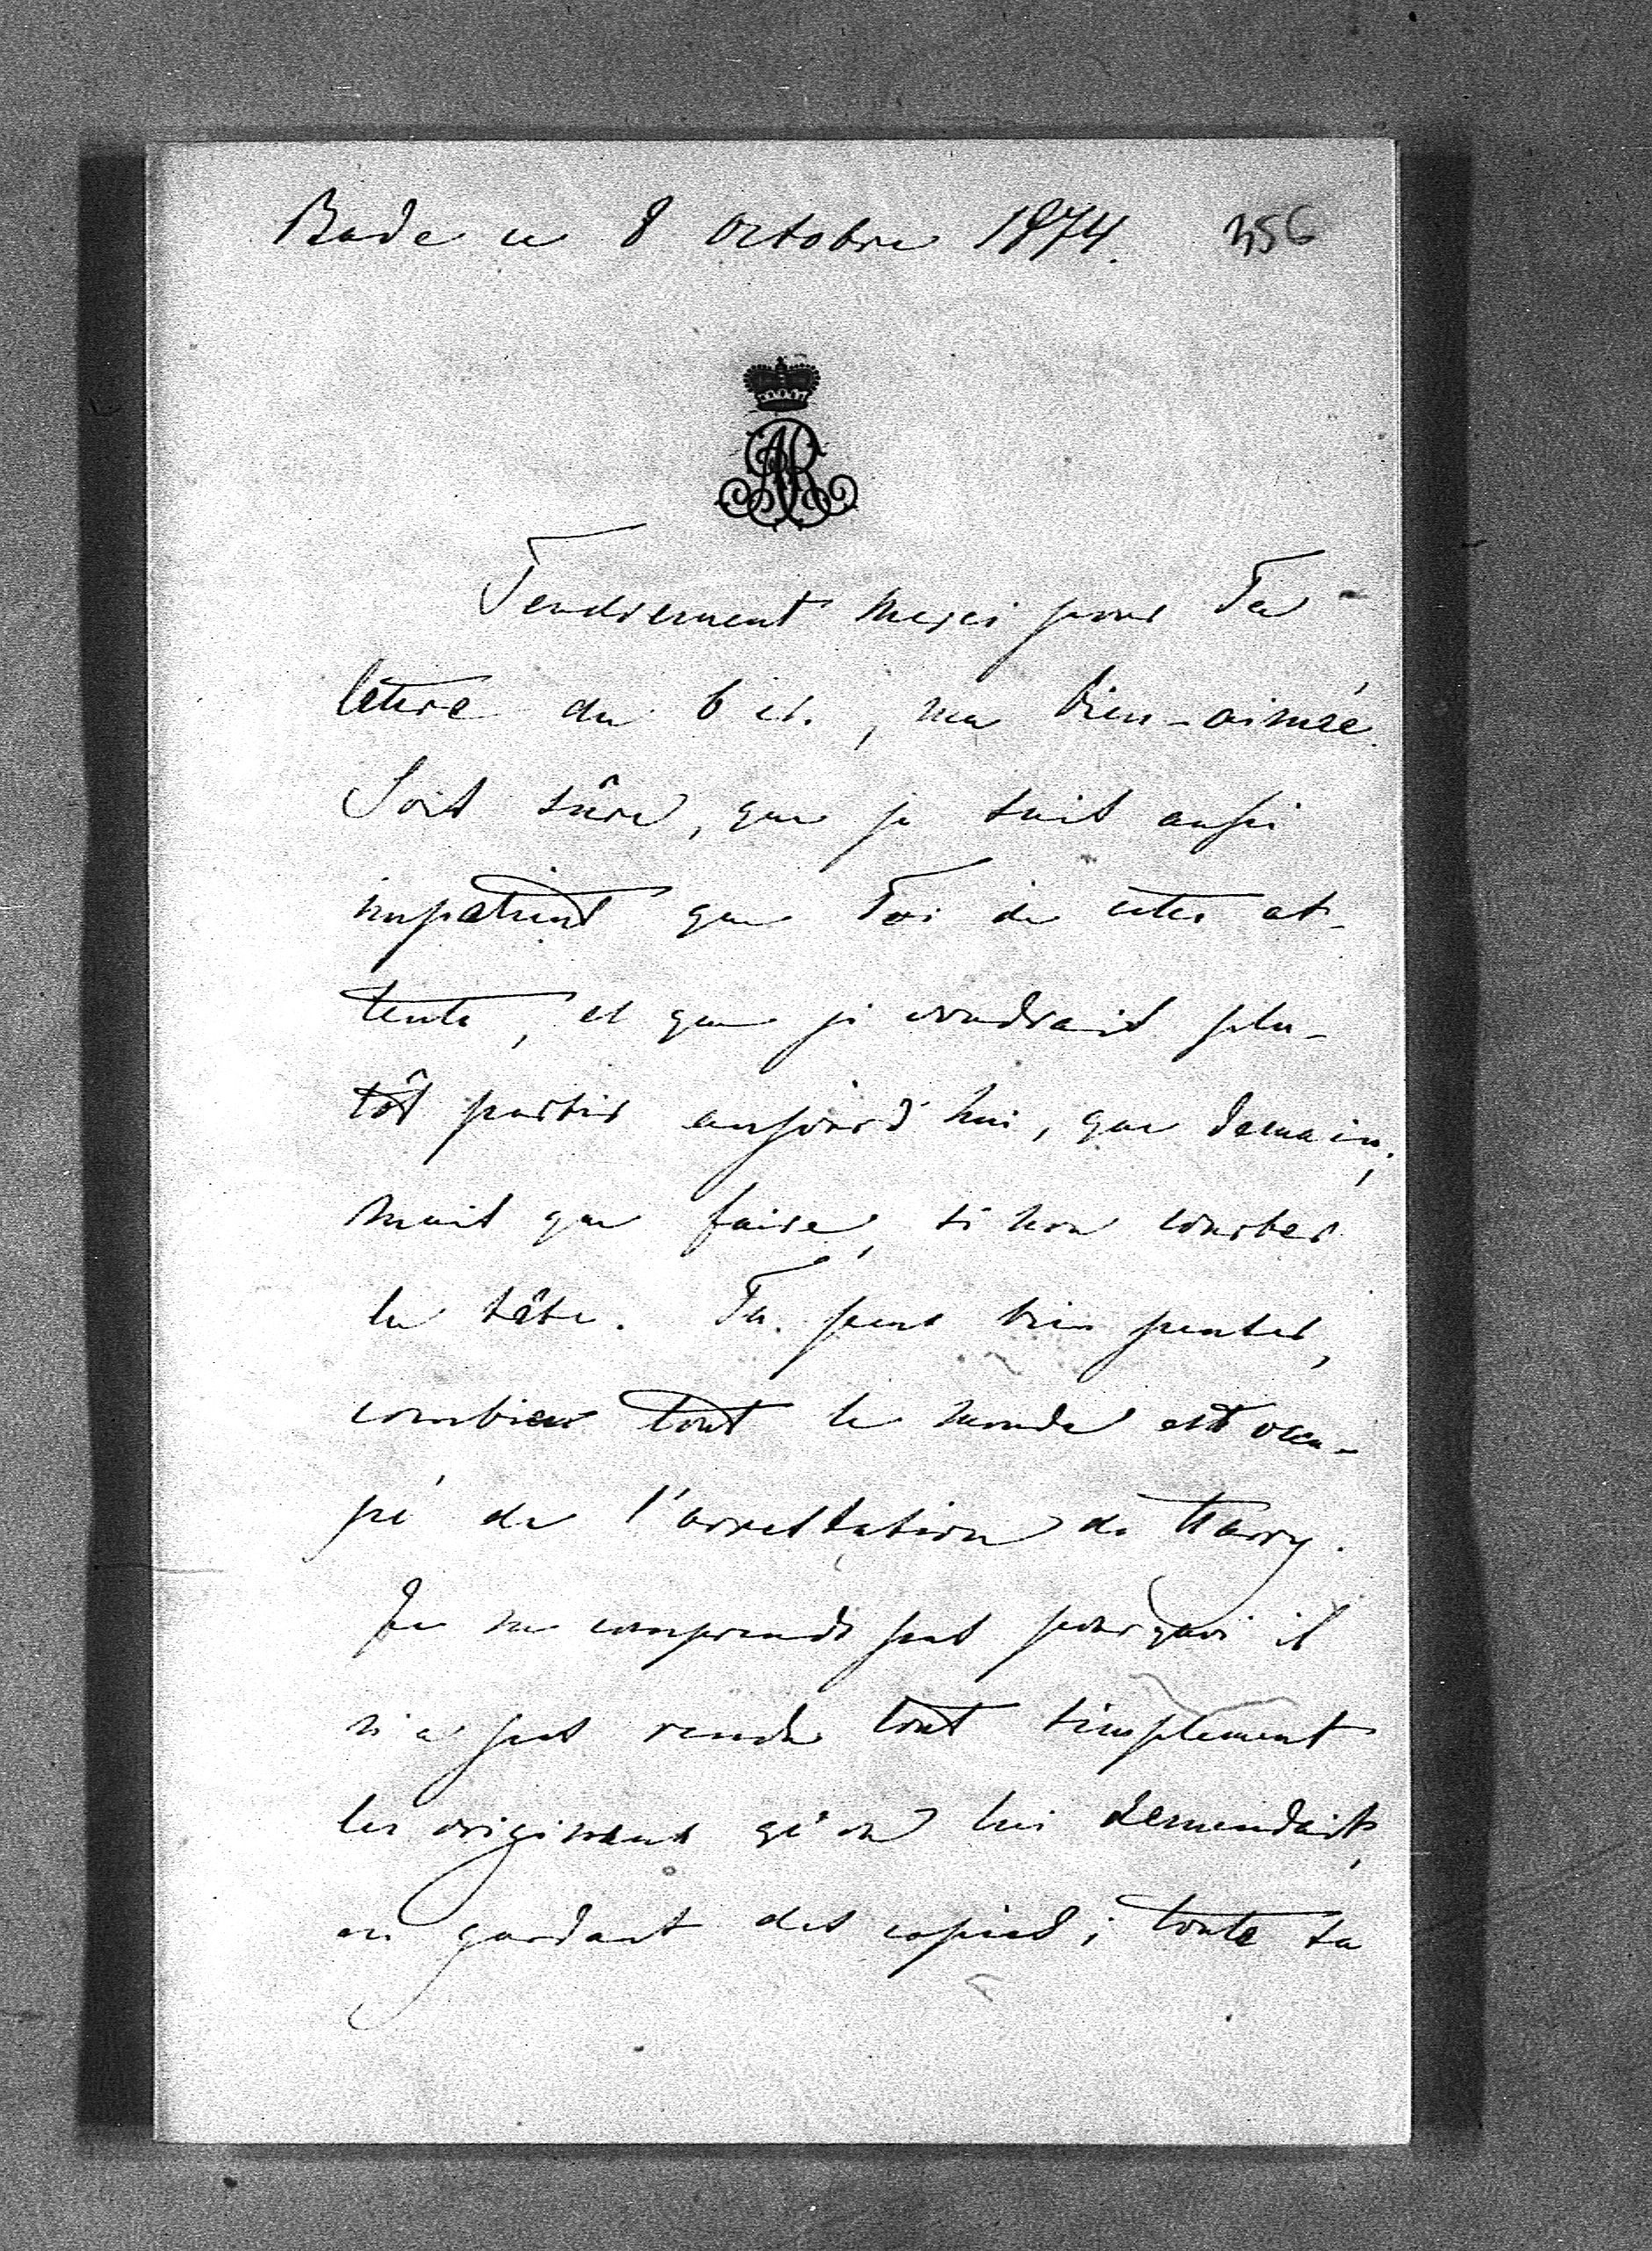 Bade ce 8 octobre 1874. 356
AR
Tendrement merci pour Ta
lettre du 6 ct., ma bien-aimée.
Sois sûre, que je suis aussi
impatient que Toi de cette at-
tente, et que je voudrais plu-
tôt partir aujourd'hui, que demain;
mais que faire, si non courber
la tête. Tu peux bien penser,
combien tout le monde est occu-
pé de l'arrestation de Harry.
Je ne comprends pas pourquoi il
n'a pas rendu tout simplement
les originaux qu'on lui demandait,
en gardant des copies; toute sa